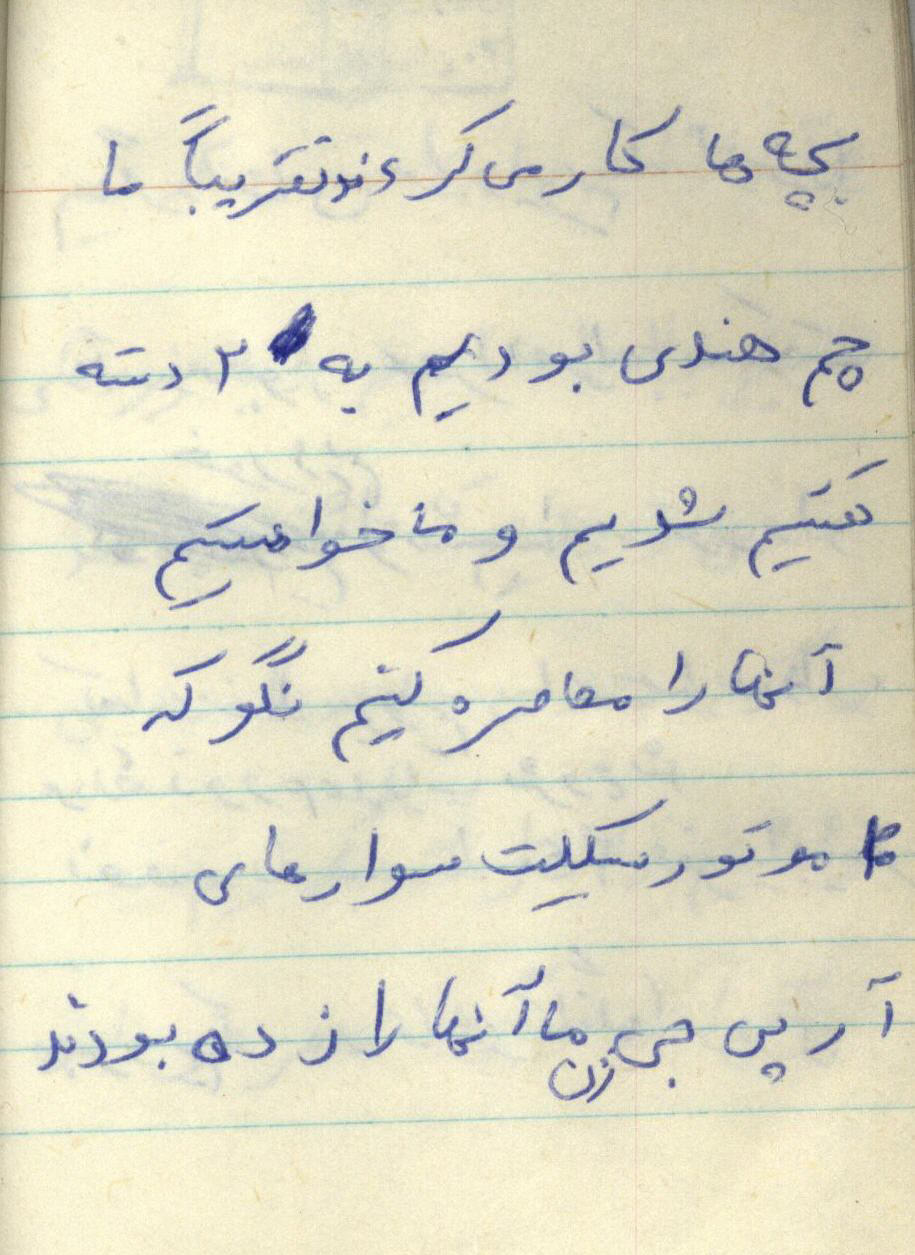 بچه ها کار می کردند تقریباً ما
چم هندی بودیم به ۲ دسته
تقسیم شدیم و ما خواستیم
آنها را محاصره کنیم نگو که
ما موتورسکلیت سوارهای
آر پی جی زن ما آنها را زده بودند